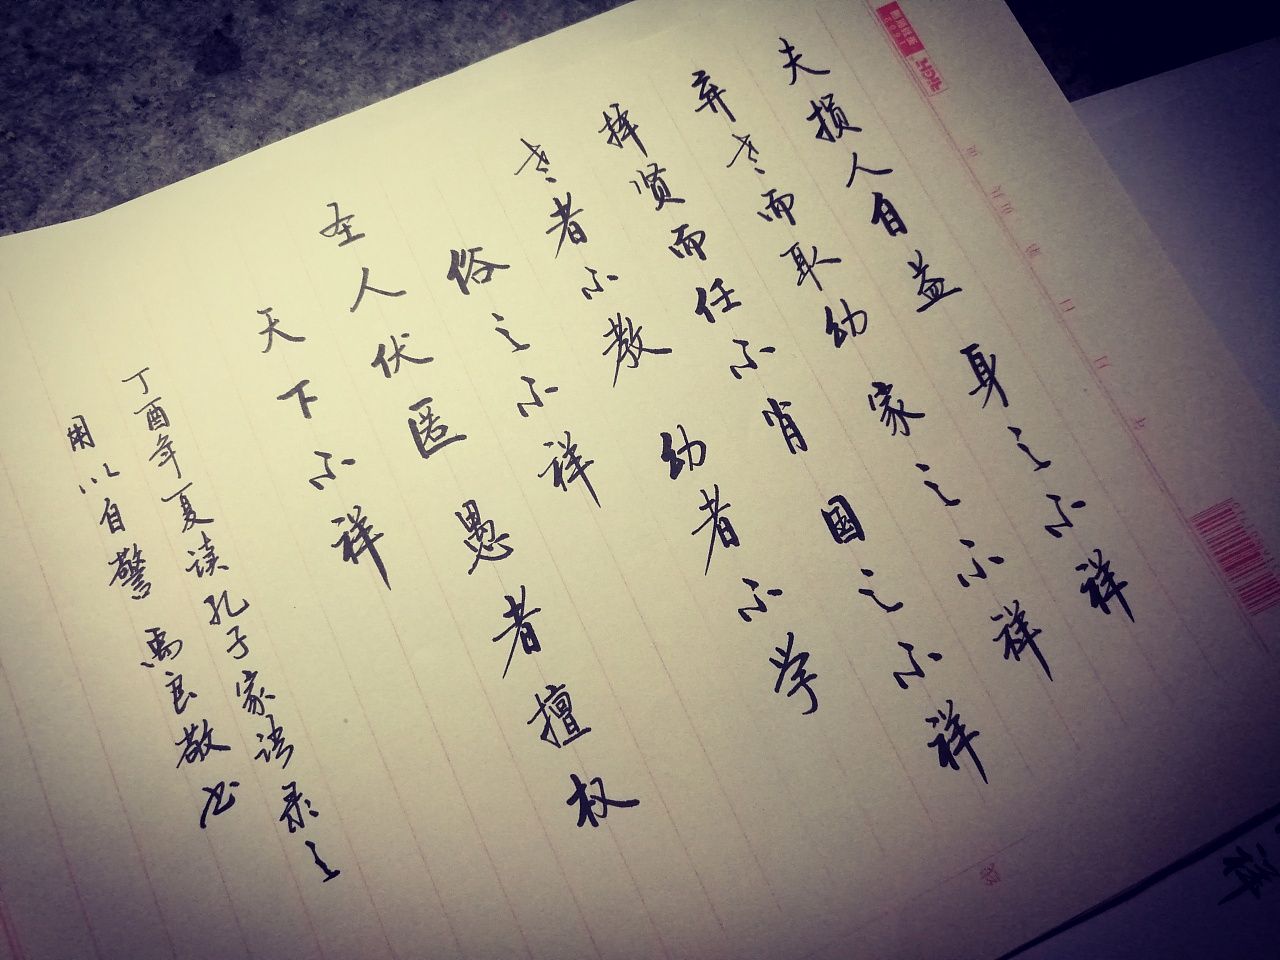 夫损人自益 身之不祥
弃老而取幼 家之不祥
择贤而任不肖 国之不祥
老者不教 幼者不学
俗之不祥
圣人伏匿 愚者擅权
天下不祥
丁酉年夏读孔子家语录之
用以自警 禹良敬书